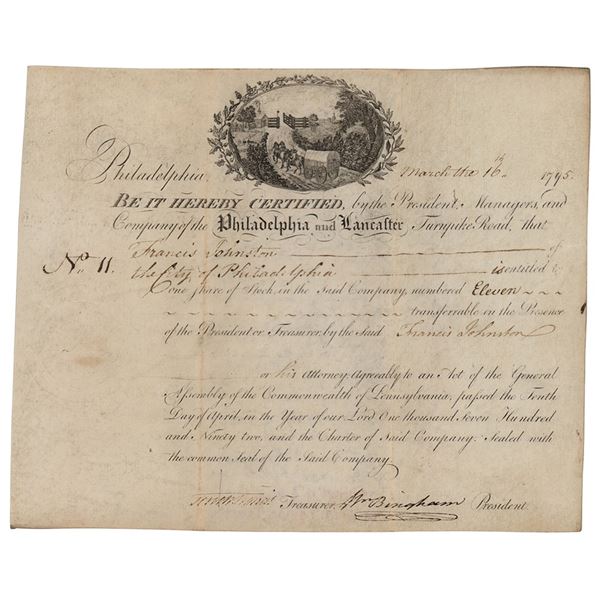 Philadelphia, March the 16th 1795.
BE IT HEREBY CERTIFIED, by the President, Managers, and
Company of the Philadelphia and Lancaster Turnpike Road, that
Francis Johnston of
No. 11. the City of Philadelphia is entitled to
One share of Stock in the said Company, numbered Eleven
transferrable in the Presence
of the President or Treasurer, by the said Francis Johnston
or his Attorney. Agreeably to an Act of the General
Assembly of the Commonwealth of Pennsylvania, passed the Tenth
Day of April, in the Year of our Lord One thousand Seven Hundred
and Ninety two, and the Charter of said Company. Sealed with
the common Seal of the Said Company.
Treasurer. Wm Bingham President.